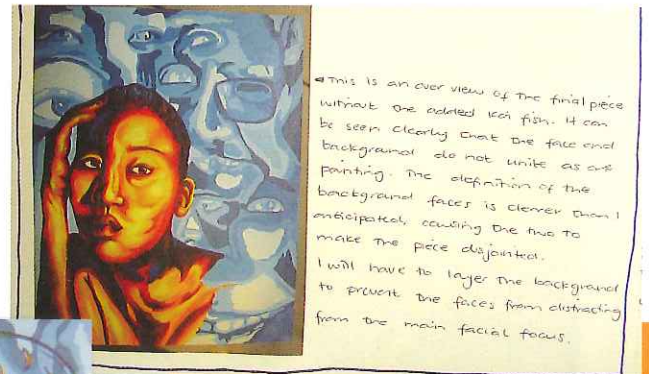 This is an over view of the final piece
without the added koi fish. It can
be seen clearly that the face and
background do not unite as one
painting. The definition of the
background faces is clearer than I
anticipated, causing the two to
make the piece disjointed.
I will have to layer the background
to prevent the faces from distracting
from the main facial focus.